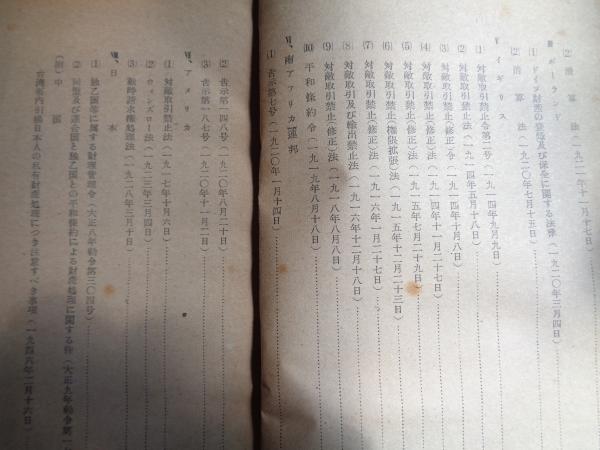 (2) 清算法(一九二一年十一月十七日)
ポーランド
(1) ドイツ財産の登録及び保全に関する法律(一九二〇年三月四日)
(2) 清算法(一九二〇年七月十五日)
V、イギリス
(1) 対敵取引禁止令第二号(一九一四年九月九日)
(2) 対敵取引禁止法(一九一四年九月十八日)
(3) 対敵取引禁止(修正)令(一九一四年十月八日)
(4) 対敵取引禁止(修正)法(一九一四年十一月二十七日)
(5) 対敵取引禁止(修正)法(一九一五年七月二十九日)
(6) 対敵取引禁止(権限拡張)法(一九一五年十二月二十三日)
(7) 対敵取引禁止(修正)法(一九一六年一月二十七日)
(8) 対敵取引及び輸出禁止法(一九一六年十二月十八日)
(9) 対敵取引禁止(修正)法(一九一八年八月八日)
(10) 平和條約令(一九一九年八月十八日)
VI、南アフリカ連邦
(1) 告示第七号(一九二〇年一月十四日)
(2) 告示第一四八号(一九二〇年八月二十日)
(3) 告示第一八七号(一九二〇年十月一日)
アメリカ
(1) 対敵取引禁止法(一九一七年十月六日)
(2) ウィンズロー法(一九二三年三月四日)
(3) 戦時請求権処理法(一九二八年三月十日)
日本
(1) 独乙国等に属する財産管理令(大正八年勅令第三〇四号)
(2) 同盟及び連合国と独乙国との平和條約による財産処理に関する件(大正九年勅令第一
(附) 中国
台湾省内引揚日本人の私有財産処理につき注意すべき事項(一九四六年二月十六日)